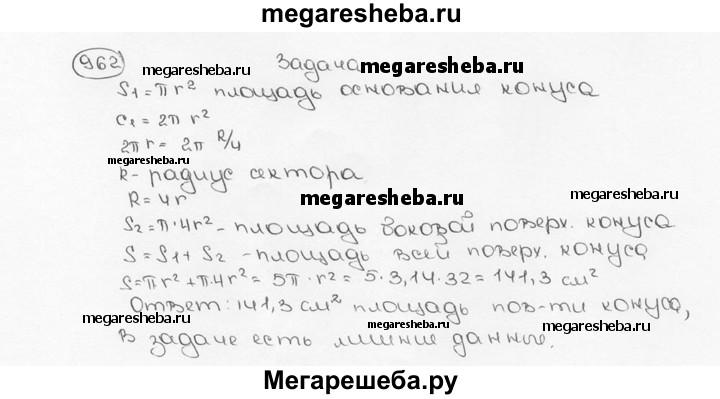 megaresheba.ru
962 Задача
megaresheba.ru
S1 = π r² площадь основания конуса
C1 = 2π r²
2π r = 2π R/4
megaresheba.ru
R - радиус сектора
R = 4r megaresheba.ru
S2 = π·4r² - площадь боковой поверх. конуса
S = S1 + S2 - площадь всей поверх. конуса
S = πr² + π4r² = 5π·r² = 5·3,14·32 = 141,3 см²
Ответ: 141,3 см² площадь пов-ти конуса,
megaresheba.ru megaresheba.ru megaresheba.ru
В задаче есть лишние данные.
Мегарешеба.ру